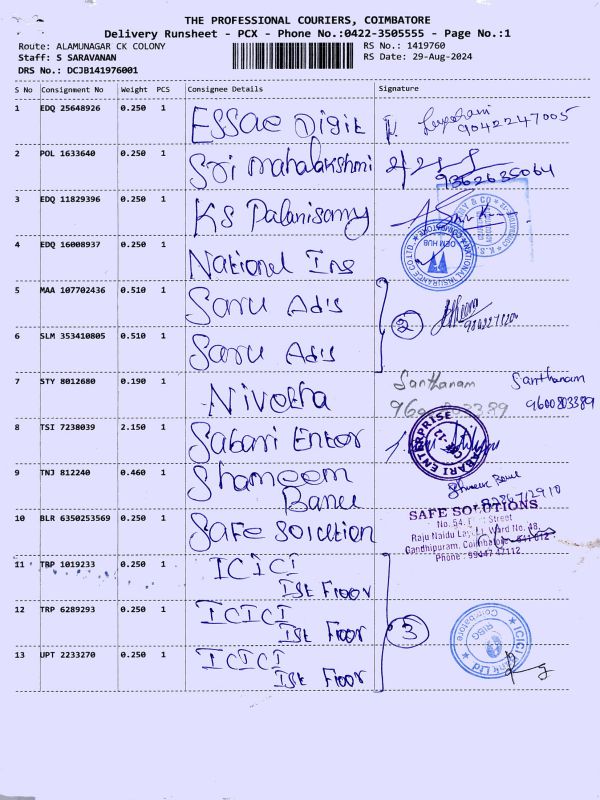 THE PROFESSIONAL COURIERS, COIMBATORE
Delivery Runsheet - PCX - Phone No.:0422-3505555 - Page No.:1
Route: ALAMUNAGAR CK COLONY
RS No.: 1419760
Staff: S SARAVANAN
RS Date: 29-Aug-2024
DRS No.: DCJB141976001
S No Consignment No Weight PCS Consignee Details Signature
1 EDQ 25648926 0.250 1 Essae Digit
9042247005
2 POL 1633640 0.250 1 Sri Mahalakshmi
9362635064
3 EDQ 11829396 0.250 1 KS Palanisamy
4 EDQ 16008937 0.250 1 National Ins
NATIONAL INSURANCE CO.LTD. COIMBATORE
OEM HUB
5 MAA 107702436 0.510 1 Saru Adis
2
6 SLM 353410805 0.510 1 Saru Adis
7 STY 8012680 0.190 1 Nivetha
Santhanam Santhanam
9600803389 9600803389
8 TSI 7238039 2.150 1 Sabari Enter
ENTERPRISE
CBE-12
9 TNJ 812240 0.460 1 Shameem
Banu
Shameem Banu
10 BLR 6350253569 0.250 1 Safe solution
SAFE SOLUTIONS
No. 54, Street
Raju Naidu Ward No. 48,
Gandhipuram, Coimbatore - 641 012
Phone : 99447 42112
11 TRP 1019233 0.250 1 ICICI
Ist Floor
12 TRP 6289293 0.250 1 ICICI
Ist Floor
3
13 UPT 2233270 0.250 1 ICICI
Ist Floor
ICICI Bank Ltd Coimbatore
RISG